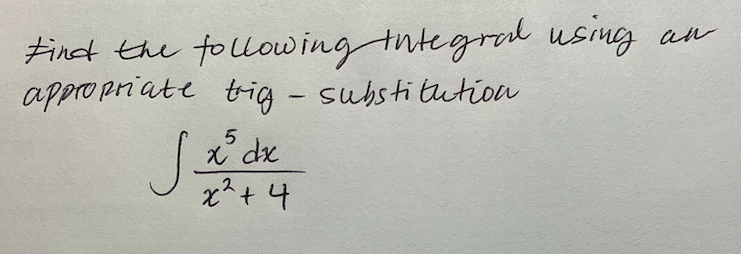 Find the following Integral using an
appropriate trig - substitution
∫ x⁵ dx / x² + 4